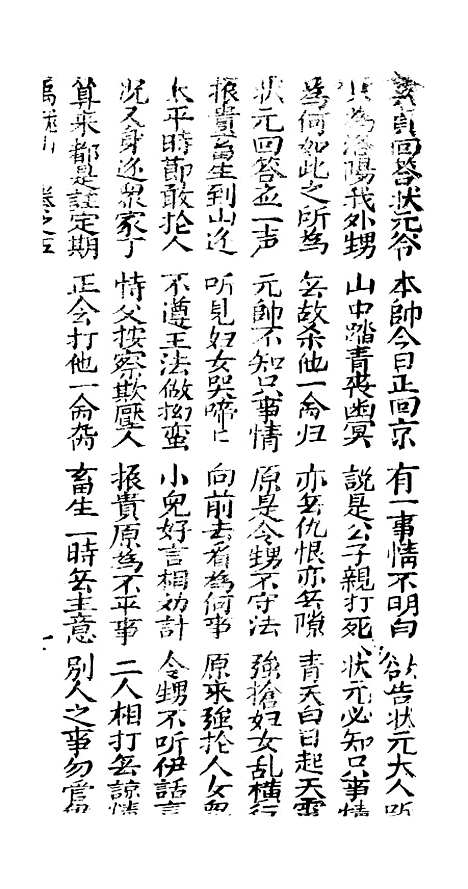 貴回答狀元爷 本帥今日正回京 有一事情不明白 欲告狀元大人听
為洛陽我外甥 山中踏青喪幽冥 說是公子親打死 狀元必知只事情
為何如此之所為 無故杀他一命归 亦無仇恨亦無隙 青天白日起天雷
狀元回答一声 元帥不知只事情 原是令甥不守法 強搶妇女乱横行
振貴畜生到山边 听見妇女哭啼匕 向前去看為何事 原來強抢人女兒
太平時節敢抢人 不遵王法做拗蛮 小兒好言相劝計 令甥不听伊話言
况又身边眾家丁 恃父按察欺壓人 振貴原為不平事 二人相打無諒情
算来都是註定期 正会打他一命 畜生一時無主意 别人之事勿管伊
卷之五